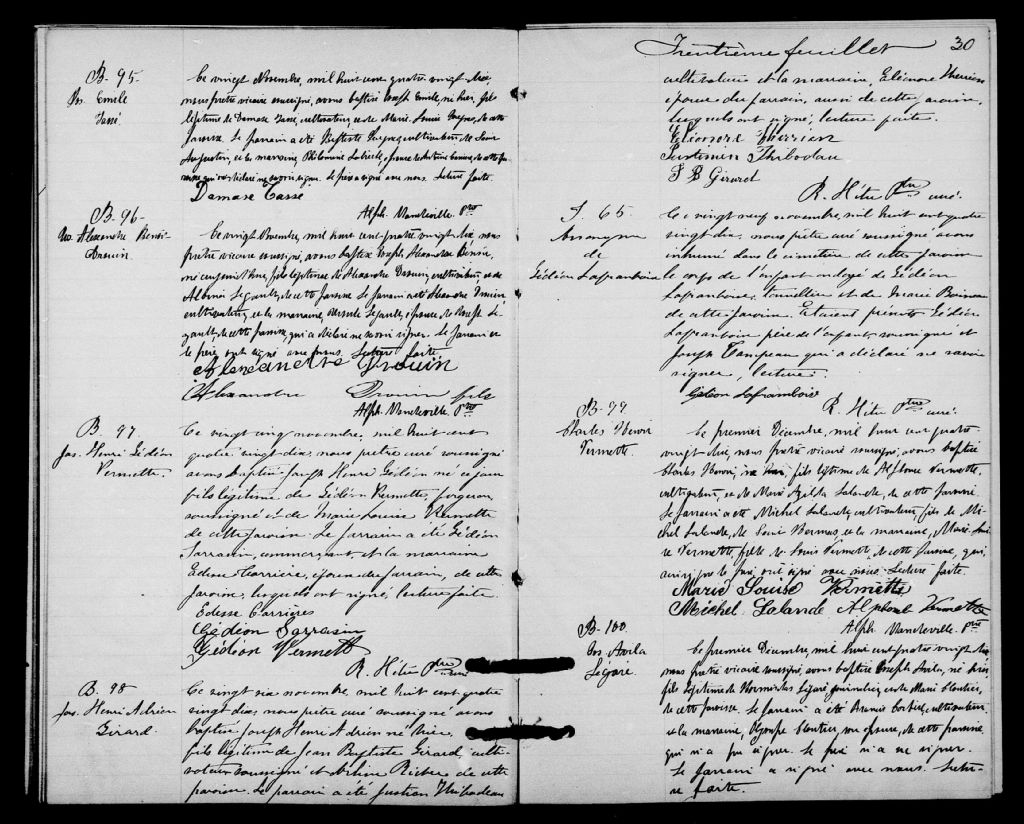 B. 95.
Jos. Emile
Tassé
Ce vingt Novembre, mil huit cent quatre vingt dix
nous prêtre vicaire soussigné, avons baptisé Joseph Emile, né hier, fils
légitime de Damase Tassé, cultivateur, et de Marie Louise de cette
paroisse. Le parrain a été Baptiste cultivateur, de Saint
Augustin, et la marraine, Philomène épouse de de cette pa-
roisse qui ont déclaré ne savoir signer. Le père a signé avec nous. Lecture faite.
Damase Tassé
Alph. Vandeville. Ptre
B-96-
Jos. Alexandre Benoi-
Drouin.
Ce vingt Novembre, mil huit cent quatre vingt dix nous
prêtre vicaire soussigné, avons baptisé Joseph, Alexandre Benoin,
né aujourd'hui, fils légitime de Alexandre Drouin, cultivateur, et de
Albina Legault, de cette paroisse. Le parrain a été Alexandre Drouin,
cultivateur, et la marraine, Legault, épouse de Joseph Le-
gault, de cette paroisse, qui a déclaré ne savoir signer. Le parrain et
le père ont signé avec nous. Lecture faite.
Alexandre Drouin
Alexandre Drouin fils
Alph. Vandeville. Ptre
B. 97
Jos. Henri Gédéon
Vermette.
Ce vingt cinq novembre, mil huit cent
quatre vingt dix, nous prêtre curé soussigné
avons baptisé Joseph Henri Gédéon né ce jour
fils légitime de Gédéon Vermette, forgeron,
soussigné et de Marie Louise Vermette
de cette paroisse. Le parrain a été Gédéon
Sarrasin, commerçant, et la marraine
Edesse Carrière, épouse du parrain, de cette
paroisse, lesquels ont signé, lecture faite.
Edesse Carrières
Gédéon Sarrasin
Gédéon Vermett
R. Hétu Ptre curé
B. 98
Jos. Henri Adrien
Girard.
Ce vingt six novembre, mil huit cent quatre
vingt dix, nous prêtre curé soussigné avons
baptisé Joseph Henri Adrien né hier,
fils légitime de Jean Baptiste Girard, culti-
vateur soussigné et de cette
paroisse. Le parrain a été Justian Thibodeau
Trentième feuillet 30
cultivateur et la marraine, Eléonore Therrien
épouse du parrain, aussi de cette paroisse,
lesquels ont signé, lecture faite.
Eléonore Therrien
Justinien Thibodau
J B Girard
R. Hétu Ptre curé.
S. 65.
Anonyme
de
Gédéon Laframboise
Ce vingt neuf novembre, mil huit cent quatre
vingt dix, nous prêtre curé soussigné avons
inhumé dans le cimetière de cette paroisse
le corps de l'enfant ondoyé de Gédéon
Laframboise, tonnelier et de Marie
de cette paroisse. Etaient présents Gédéon
Laframboise père de l'enfant, soussigné et
Joseph Campeau qui a déclaré ne savoir
signer, lecture.
Gédéon Laframboise
R. Hétu Ptre curé.
B-99
Charles Henri
Vermette.
Ce premier Décembre, mil huit cent quatre
vingt dix, nous prêtre vicaire soussigné, avons baptisé
Charles Henri, né hier, fils légitime de Alphonse Vermette,
cultivateur, et de Marie Lalande, de cette paroisse.
Le parrain a été Michel Lalande, cultivateur, fils de Mi-
chel Lalande, de Saint et la marraine, Marie Loui-
se Vermette, fille de Louis Vermette, de cette paroisse, qui,
ainsi que le père, ont signé avec nous. Lecture faite.
Marie Louise Vermette
Meichel Lalande Alphonse Vermette
Alph. Vandeville. Ptre
B-100.
Jos. Avila
Légaré.
Ce premier Décembre, mil huit cent quatre vingt dix
nous prêtre vicaire soussigné, avons baptisé Joseph Avila, né hier,
fils légitime de Hormisdas Légaré journalier, et de Marie Cloutier,
de cette paroisse. Le parrain a été cultivateur,
et la marraine, Olympe Cloutier son épouse, de cette paroisse,
qui n'a pu signer. Le père n'a su signer.
Le parrain a signé avec nous. Lectu-
re faite.